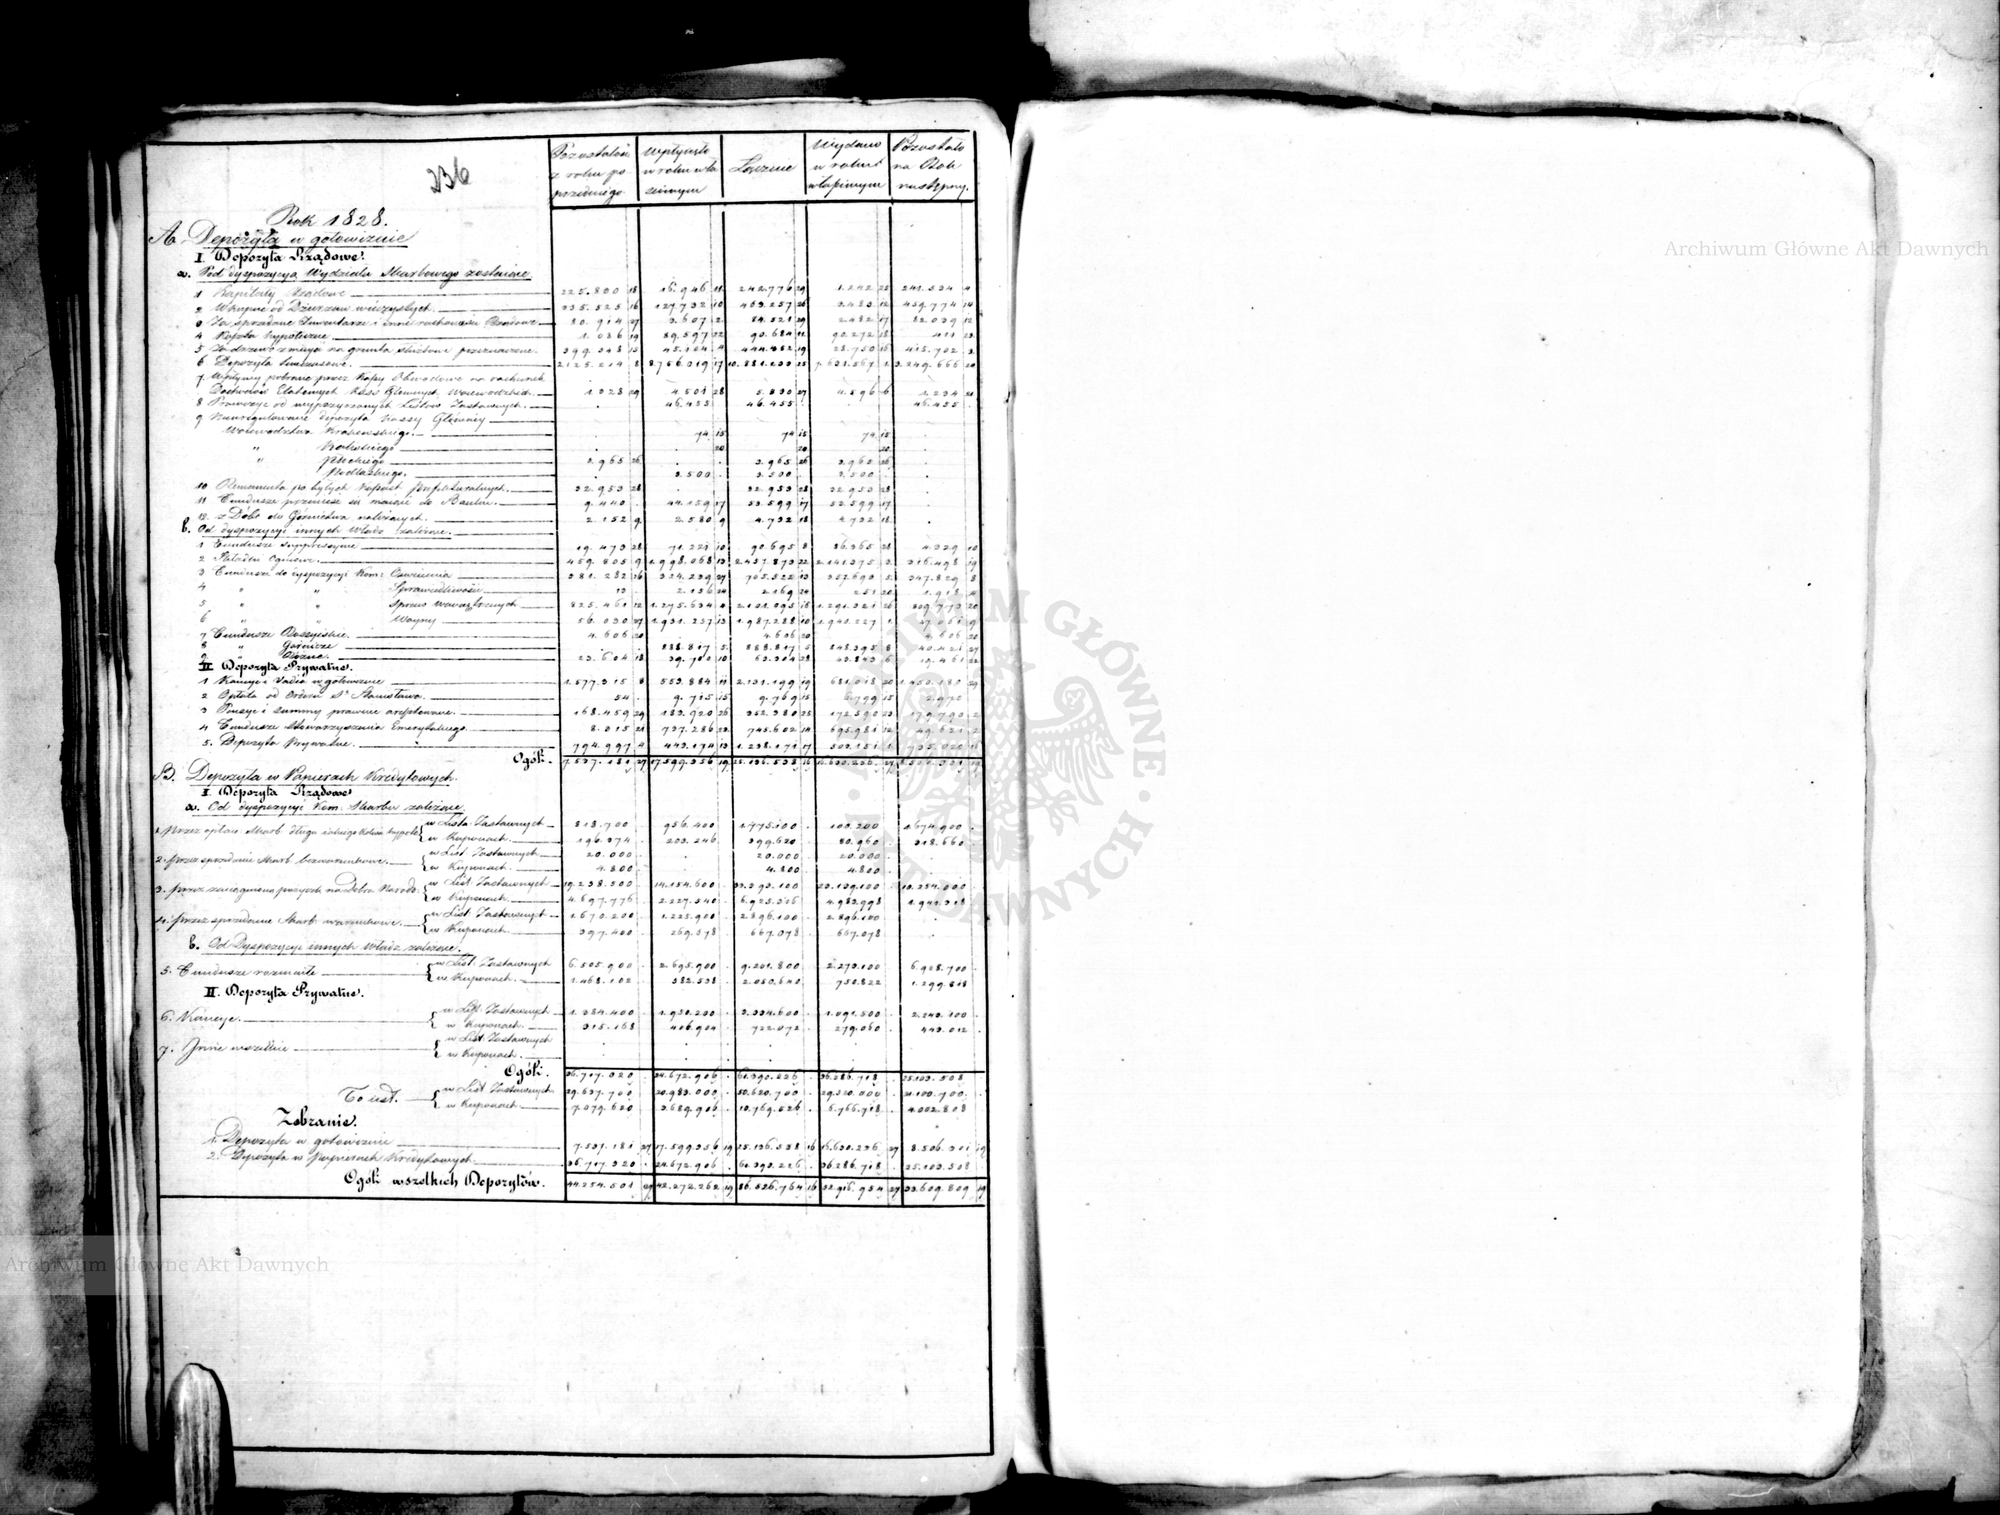 236
Pozostałość z roku poprzedniego | Wpłynęło w roku właściwym | Łącznie | Wydano w roku właściwym | Pozostało na Rok następny.
Rok 1828.
A. Depozyta w gotowiźnie
I. Depozyta Rządowe.
a. Pod dyspozycyą Wydziału Skarbowego zostaiące
1 Kapitały Rządowe 225.830 18 16.946 11 242.776 29 1.242 25 241.534 4
2 Wkupne od Dzierzaw wieczystych 335.525 16 127.732 10 463.257 26 3.483 12 459.774 14
3 Za sprzedane Inwentarze i inne ruchomości Rządowe 80.914 27 3.607 2 84.521 29 2.482 17 82.039 12
4 Koszta hypoteczne 1.086 19 89.597 22 90.684 11 90.272 18 411 23
5 399.348 15 45.104 4 444.452 19 28.750 16 415.702 3
6 Depozyta 2.125.214 8 8.756.019 17 10.881.233 25 7.631.567 3.249.666 20
7 Wpływy pobrane przez Kassy Obwodowe na rachunek
Dochodów Etatowych Kass Głównych Wojewódzkich 1.328 29 4.501 28 5.830 27 4.596 6 1.234 21
8 Prowizye od wypożyczonych Listów Zastawnych . 46.455 46.455 . 46.455
9 Nieuregulowane depozyta Kassy Główney
Województwa Krakowskiego . 74 15 74 15 74 15 .
" Kaliskiego . 20 20 20 .
" Płockiego 3.965 26 . 3.965 26 3.965 26 .
Podlaskiego . 3.500 3.500 3.500 .
10 Remanenta po byłych Kassach Prefekturalnych 32.953 28 . 32.953 28 32.953 28 .
11 Fundusze przenieść się maiące do Banku 9.440 44.159 17 53.599 17 53.599 17 .
12 z Dóbr do Górnictwa należących 2.152 9 2.580 9 4.732 18 4.732 18 .
b. Od dyspozycyi innych Władz zależne
1 Fundusze suppressyine 19.473 28 71.221 10 90.695 8 86.365 28 4.329 10
2 Składki Ogniowe 459.805 9 1.998.068 13 2.457.873 22 2.141.375 3 316.498 19
3 Fundusze do dyspozycyi Kom: Oświecenia 381.282 16 324.239 27 705.522 13 357.693 5 347.829 8
4 " " Sprawiedliwości 33 2.136 24 2.169 24 251 20 1.918 4
5 " " Spraw Wewnętrznych 825.461 12 1.275.634 4 2.101.095 16 1.291.321 26 809.773 20
6 " " Woyny 56.030 27 1.931.257 13 1.987.288 10 1.940.227 1 47.061 9
7 Fundusze Rossyiskie 4.606 20 . 4.606 20 . 4.606 20
8 " Górnicze . 888.817 5 888.817 5 848.395 8 40.421 27
9 " Różne 23.604 18 39.700 10 63.304 28 43.843 6 19.461 22
II Depozyta Prywatne.
1 Kaucye i Vadia w gotowiźnie 1.577.315 8 553.884 11 2.131.199 19 681.018 20 1.450.180 29
2 Opłata od Orderu Sgo Stanisława 54 9.715 15 9.769 15 6.799 15 2.970
3 Pensye i Summy prawnie aresztowane 168.459 29 183.920 26 352.380 25 172.590 23 179.790 2
4 Fundusze Stowarzyszenia Emerytalnego 8.315 21 737.286 23 745.602 14 695.981 12 49.621 2
5. Depozyta Prywatne 794.997 4 443.174 13 1.238.171 17 503.151 1 735.020 16
Ogół. 7.537.181 27 17.599.356 19 25.136.538 16 16.630.236 27 8.506.301 19
B. Depozyta w Papierach Kredytowych.
I. Depozyta Rządowe
a. Od dyspozycyi Kom: Skarbu zależne
w Lista: Zastawnych 818.700 956.400 1.775.100 100.200 1.674.900
w Kuponach 196.374 203.246 399.620 80.960 318.660
2. przez sprzedanie Skarb. bezwarunkowe w List. Zastawnych 20.000 . 20.000 20.000 .
w Kuponach. 4.800 . 4.800 4.800 .
3. przez zaciągnienie pożyczek na Dobra Narodo: w List. Zastawnych 19.238.500 14.154.600 33.393.100 23.139.100 10.254.000
w Kuponach. 4.697.776 2.227.540 6.925.316 4.983.998 1.941.318
4. przez sprzedanie Skarb. warunkowe. w List. Zastawnych 1.670.200 1.225.900 2.896.100 2.896.100 .
w Kuponach. 397.400 269.678 667.078 667.078 .
b. Od Dyspozycyi innych Władz zależne.
5. Fundusze rozmaite w List. Zastawnych 6.505.900 2.695.900 9.201.800 2.273.100 6.928.700
w Kuponach. 1.468.102 582.538 2.050.640 750.822 1.299.818
II. Depozyta Prywatne.
6. Kaucye. w List. Zastawnych 1.384.400 1.950.200 3.334.600 1.091.500 2.243.100
w Kuponach. 315.168 406.904 722.072 279.060 443.012
7. Inne wszelkie w List. Zastawnych . . . . .
w Kuponach. . . . . .
Ogół. 36.717.320 24.672.906 61.390.226 36.286.718 25.103.508
To iest. w List Zastawnych 29.637.700 20.983.000 50.620.700 29.520.000 21.100.700
w Kuponach. 7.079.620 3.689.906 10.769.526 6.766.718 4.002.808
Zebranie.
1. Depozyta w gotowiźnie 7.537.181 27 17.599.356 19 25.136.538 16 16.630.236 27 8.506.301 19
2. Depozyta w Papierach Kredytowych. 36.717.320 24.672.906 61.390.226 36.286.718 25.103.508
Ogół wszelkich Depozytów. 44.254.501 27 42.272.262 19 86.526.764 16 52.916.954 27 33.609.809 19
Archiwum Główne Akt Dawnych
Archiwum Główne Akt Dawnych
ARCHIWUM GŁÓWNE · AKT DAWNYCH ·